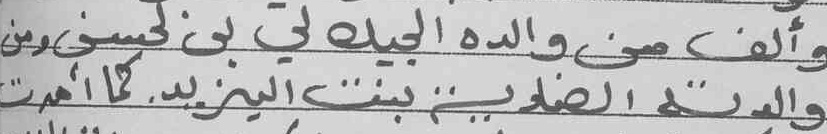 وألف من والده الجيلالي بن لحسن ومن
والدته الضاوية بنت اليزيد. كما أهدت